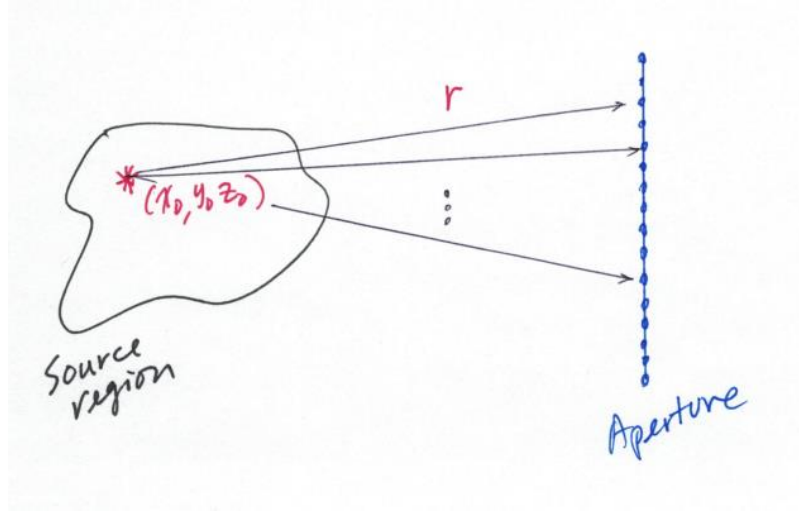 r
(x₀, y₀ z₀)
Source
region
Aperture